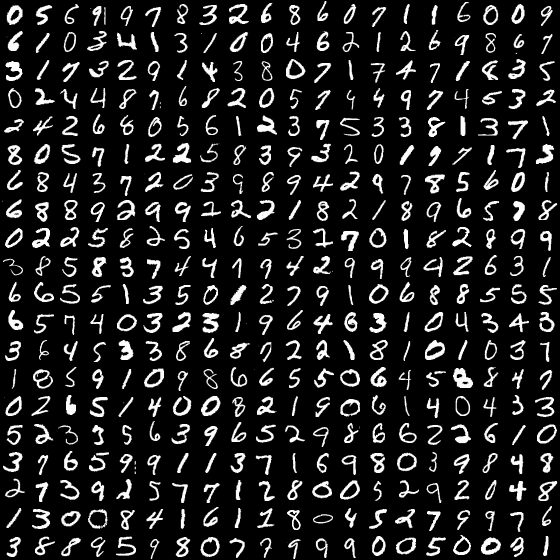 0 5 6 9 9 7 8 3 2 6 8 6 0 7 1 1 6 0 0 9
6 1 0 3 4 1 3 1 0 0 4 6 2 1 2 6 9 8 6 7
3 1 7 3 2 9 1 4 3 8 0 7 1 7 4 7 1 8 3 5
0 2 4 4 8 7 6 8 2 0 5 7 4 4 9 7 4 5 3 2
2 4 2 6 8 0 5 6 1 2 3 7 5 3 3 8 1 3 7 1
8 0 5 7 1 2 2 5 8 3 9 3 2 0 1 9 7 1 7 5
6 8 4 3 7 2 0 3 9 8 9 4 2 9 7 8 5 6 0 1
6 8 8 9 2 9 9 1 2 2 1 8 2 1 8 9 6 5 7 8
0 2 2 5 8 2 5 4 6 5 3 1 7 0 1 8 2 8 9 9
3 8 5 8 3 7 4 4 1 9 4 2 9 9 9 9 2 6 3 1
6 6 5 5 1 3 5 0 1 2 7 9 1 0 6 8 8 5 5 5
6 5 7 4 0 3 2 3 1 9 6 4 6 3 1 0 4 3 4 3
3 6 4 5 3 3 8 6 8 7 2 2 1 8 1 0 1 0 3 7
1 8 5 9 1 0 9 8 6 6 5 5 0 6 4 5 8 8 4 7
0 2 6 5 1 4 0 0 8 2 1 9 0 6 1 4 0 4 3 3
5 2 3 3 5 6 3 9 6 5 2 9 8 6 6 2 2 6 1 0
3 7 6 5 9 9 1 1 3 7 1 6 9 8 0 3 9 8 4 8
2 7 3 9 2 5 7 7 1 2 8 0 0 5 2 9 2 0 4 8
1 3 0 0 8 4 1 6 1 1 8 0 4 5 2 7 9 9 7 6
3 8 8 9 5 9 8 0 7 7 9 9 9 0 0 5 0 0 9 1